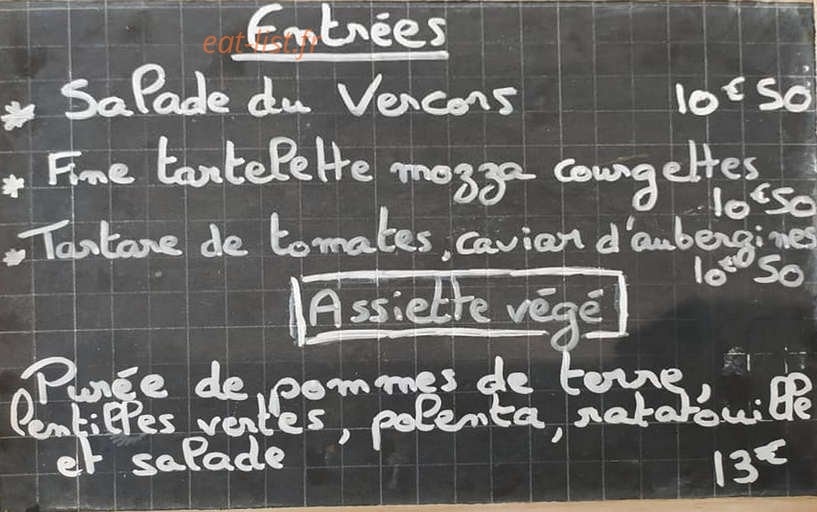 Entrées
eat-list.fr
* Salade du Vercors 10€50
* Fine tartelette mozza courgettes
10€50
* Tartare de tomates, caviar d'aubergines
10€50
Assiette végé
Purée de pommes de terre,
lentilles vertes, polenta, ratatouille
et salade
13€